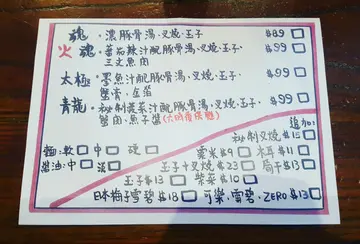 魂・濃豚骨湯・叉燒・玉子 $89
火魂・蕃茄辣汁配豚骨湯・叉燒・玉子・ $99
三文魚肉
太極・墨魚汁配豚骨湯・叉燒・玉子・ $99
蟹膏・金箔
青龍・秘制蔬菜汁配豚骨湯・叉燒・玉子・ $99
蟹肉・魚子醬(六時後供應)
追加:
秘制叉燒 $15
麵:軟 中 硬 粟米 $9 木耳 $11
醬油:中 淡 玉子+叉燒 $23 扃干 $13
玉子 $13 紫菜 $10
日本梅子雪碧 $18 可樂,雪碧,ZERO $13